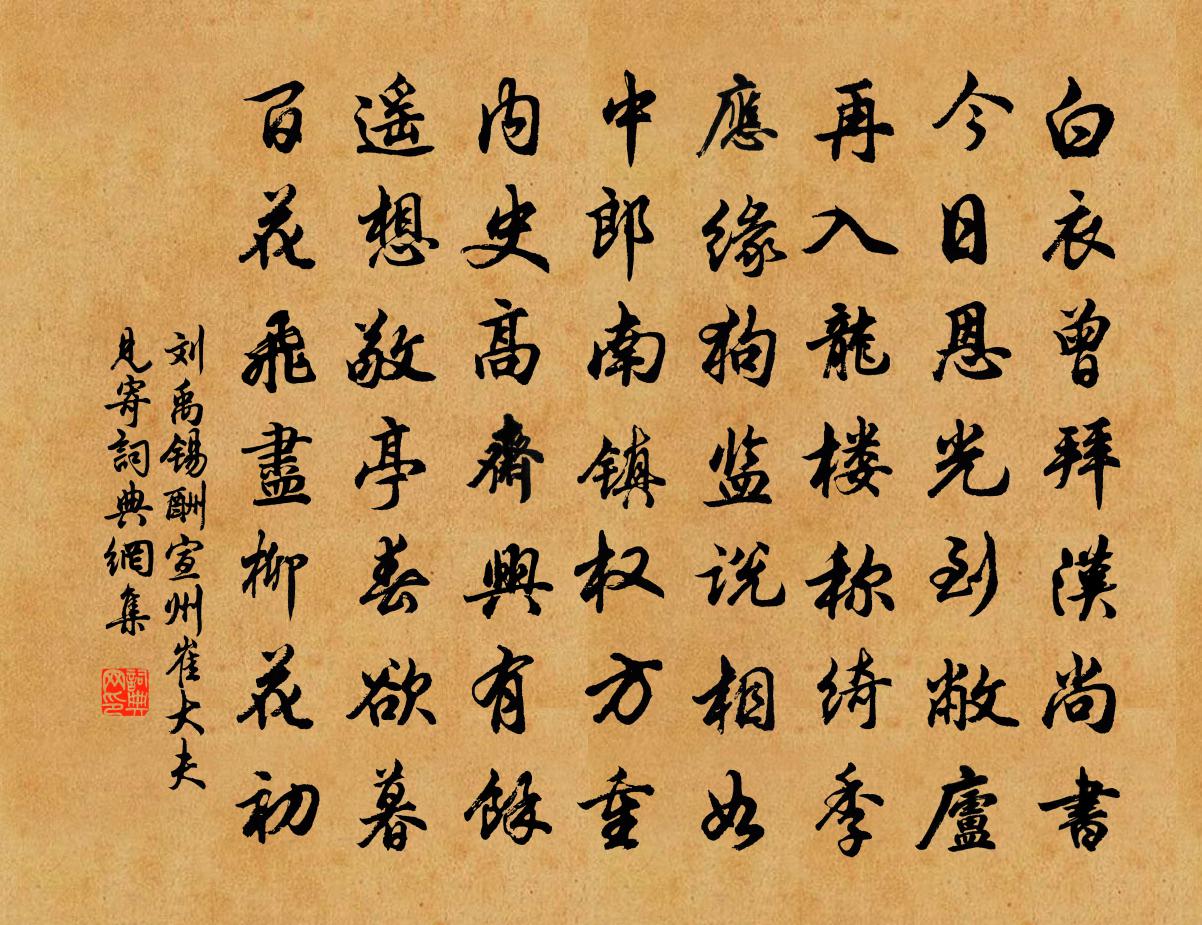 白衣曾拜漢尚書
今日恩光到敝廬
再入龍楼称綺季
應緣狗监说相如
中郎南镇权方重
内史高齋興有餘
遥想敬亭春欲暮
百花飛盡柳花初
刘禹锡酬宣州崔大夫
見寄詞典網集
詞典
网印